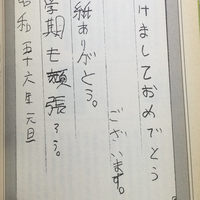 けましておめでとう
ございます。
紙ありがとう。
学期も頑張ろう。
昭和五十六年元旦